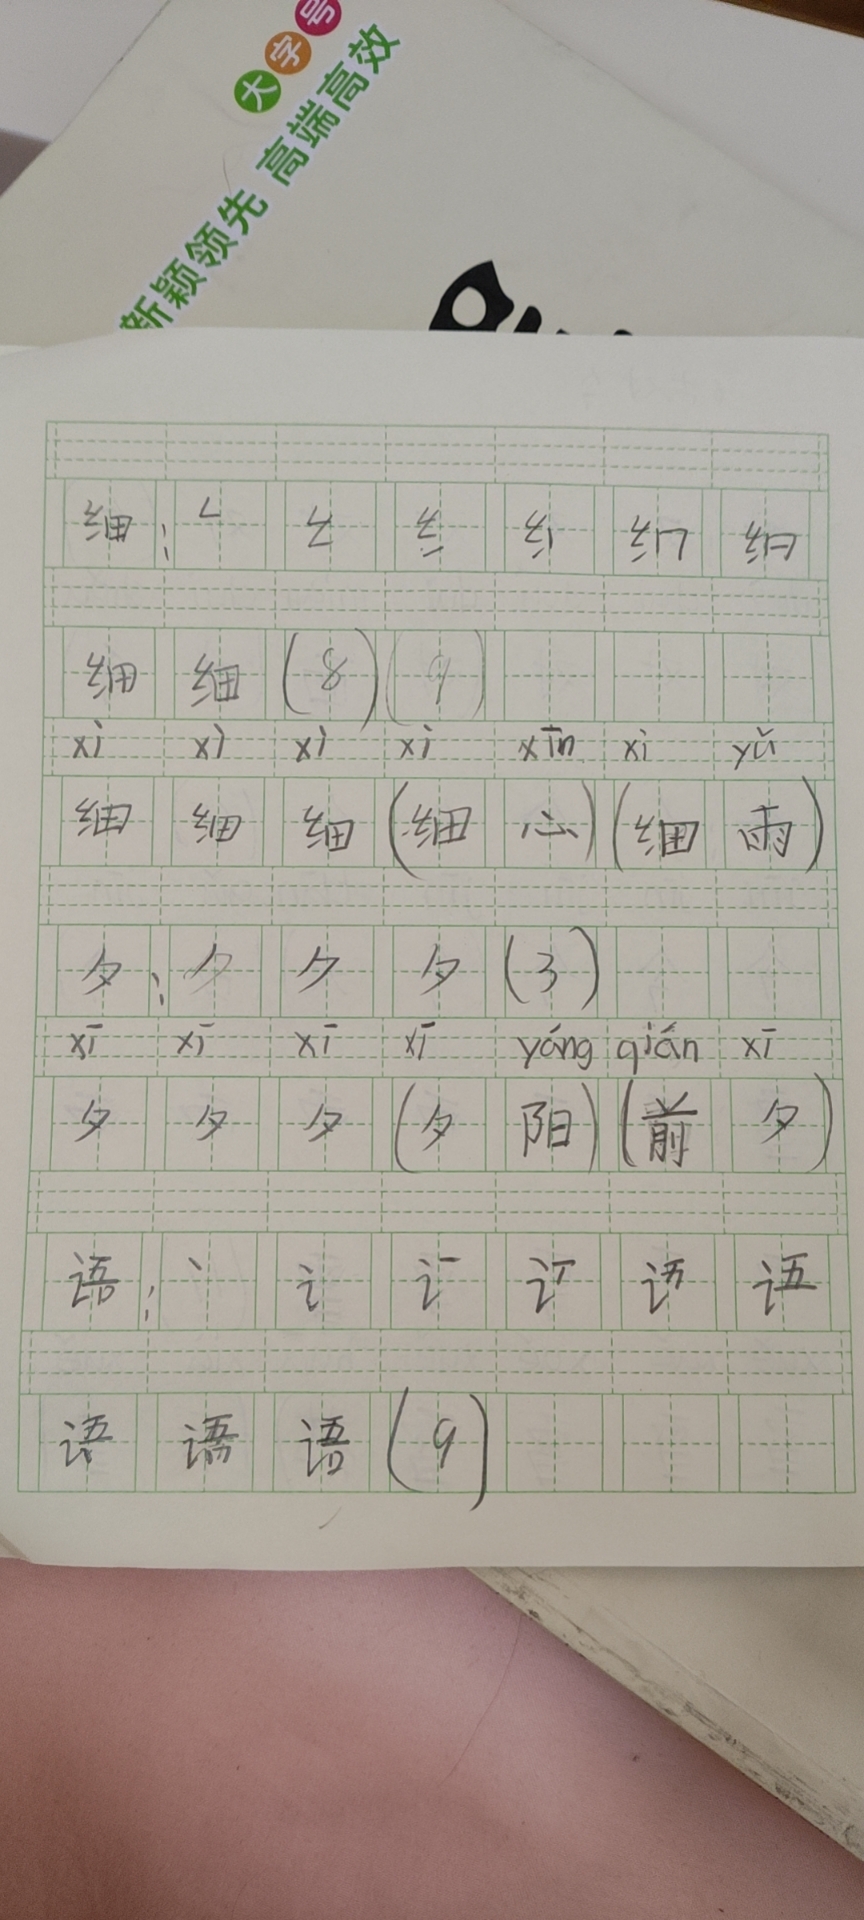 大字号
新颖领先 高端高效
细：
细 细 (8)(9)
xì xì xì xì xīn xì yǔ
细 细 细 (细 心)(细 雨)
夕： 夕 (3)
xī xī xī xī yáng qián xī
夕 夕 夕 (夕 阳)(前 夕)
语： 丶 讠
语 语 (9)